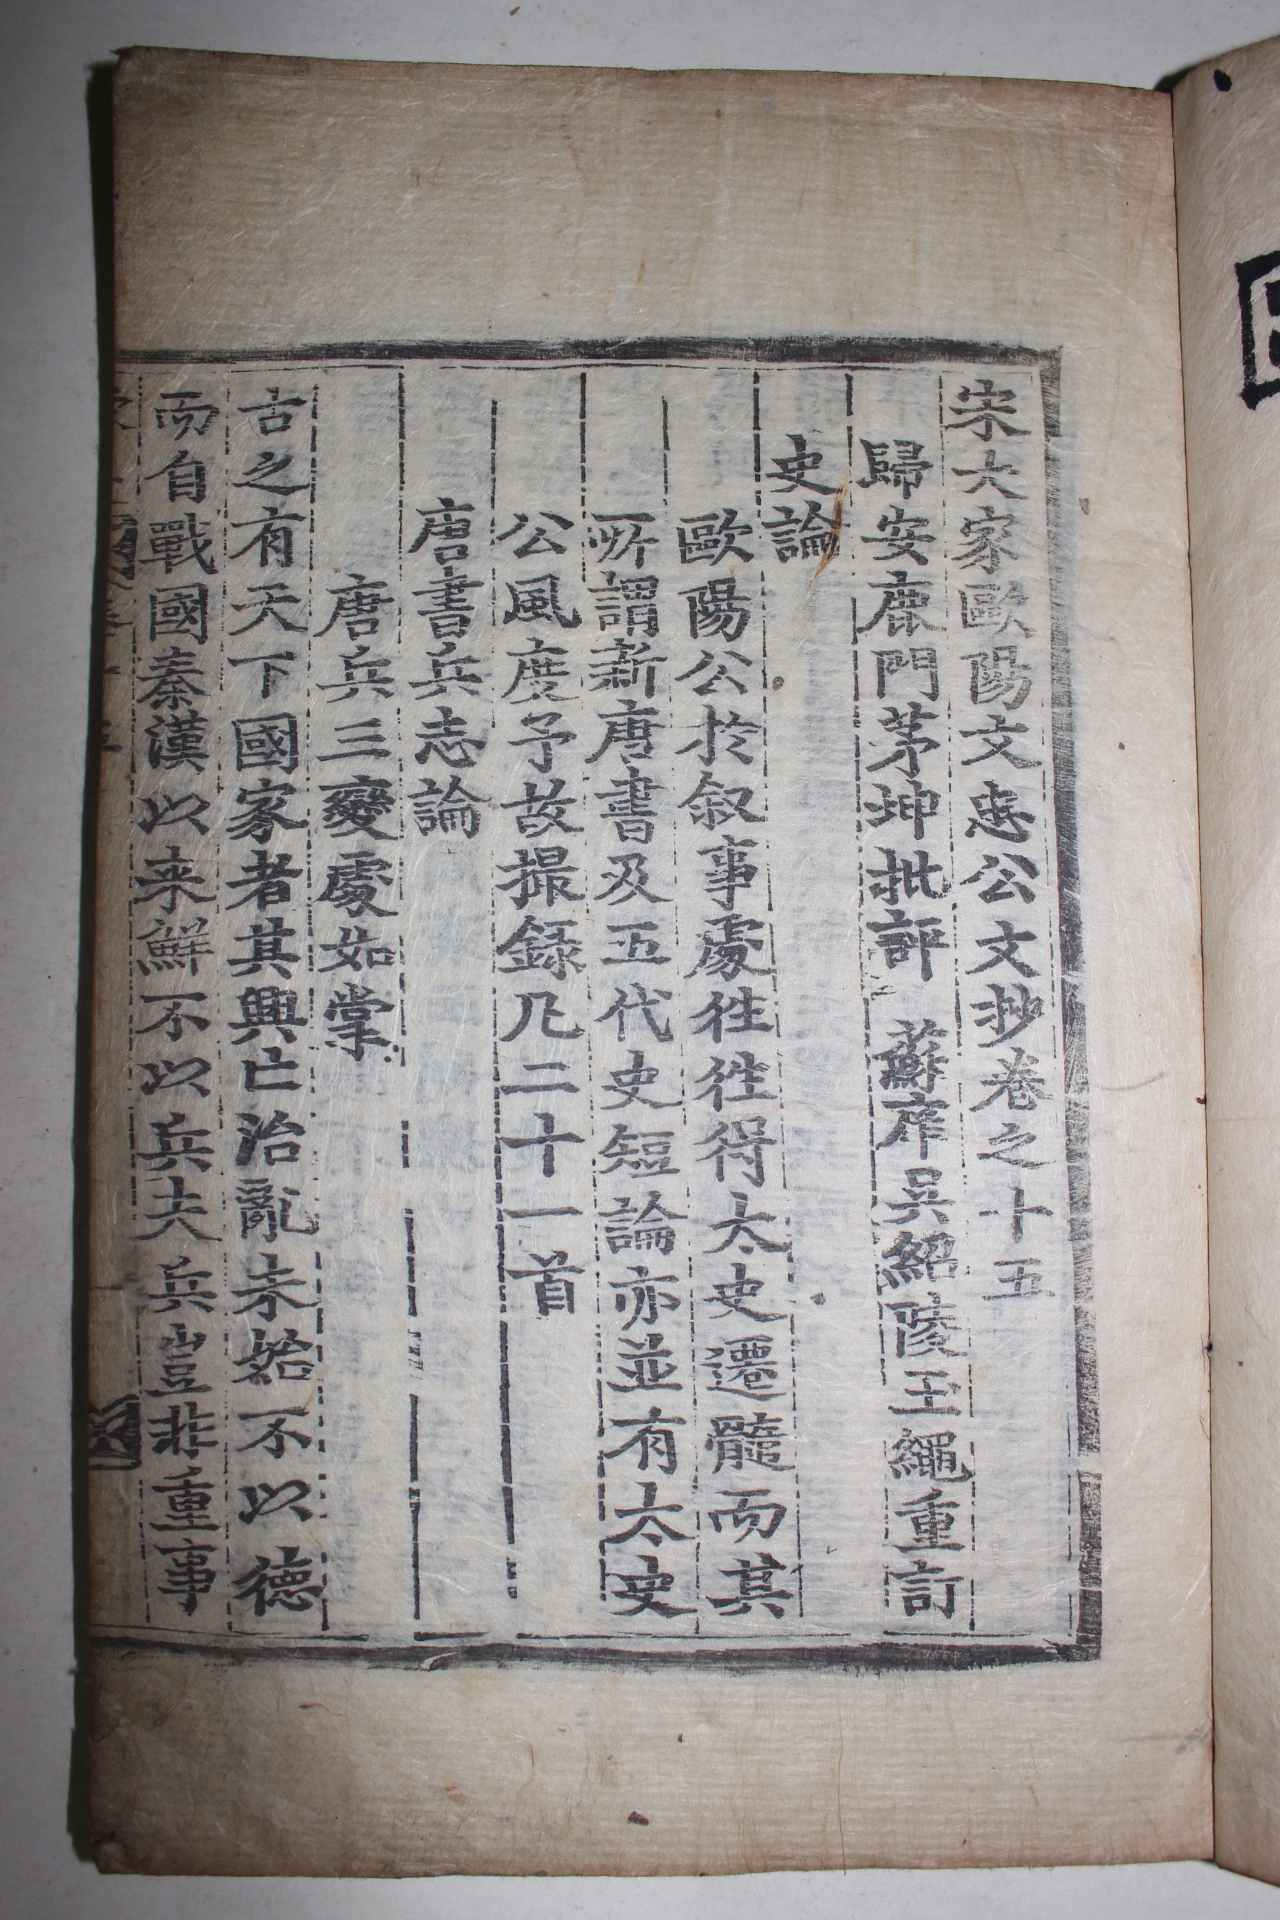 宋大家歐陽文忠公文抄卷之十五
歸安鹿門茅坤批評　蘇庠吳紹陵玉繩重訂
史論
歐陽公於叙事處徃徃得太史遷髓而其
所謂新唐書及五代史短論亦並有太史
公風度予故撮録凡二十一首
唐書兵志論
唐兵三變處如掌
古之有天下國家者其興亡治亂未始不以德
而自戰國秦漢以来鮮不以兵夫兵豈非重事